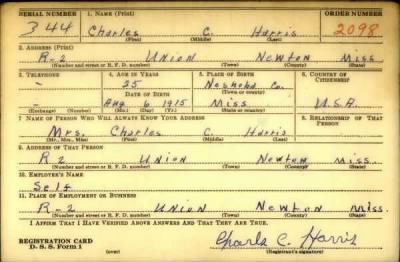 SERIAL NUMBER 1. NAME (Print) ORDER NUMBER
344 Charles C. Harris 2098
(First) (Middle) (Last)
2. ADDRESS (Print)
R-2 Union Newton Miss
(Number and street or R. F. D. number) (Town) (County) (State)
3. TELEPHONE 4. AGE IN YEARS 5. PLACE OF BIRTH 6. COUNTRY OF CITIZENSHIP
- 25 Neshoba Co.
DATE OF BIRTH (Town or county)
- Aug 6 1915 Miss. U.S.A.
(Exchange) (Number) (Mo.) (Day) (Yr.) (State or country)
7. NAME OF PERSON WHO WILL ALWAYS KNOW YOUR ADDRESS 8. RELATIONSHIP OF THAT PERSON
Mrs. Charles C. Harris
(Mr., Mrs., Miss) (First) (Middle) (Last)
9. ADDRESS OF THAT PERSON
R 2 Union Newton Miss.
(Number and street or R. F. D. number) (Town) (County) (State)
10. EMPLOYER'S NAME
Self
11. PLACE OF EMPLOYMENT OR BUSINESS
R-2 Union Newton Miss.
(Number and street or R. F. D. number) (Town) (County) (State)
I AFFIRM THAT I HAVE VERIFIED ABOVE ANSWERS AND THAT THEY ARE TRUE.
REGISTRATION CARD
D. S. S. Form 1 (over) Charls C. Harris
(Registrant's signature)